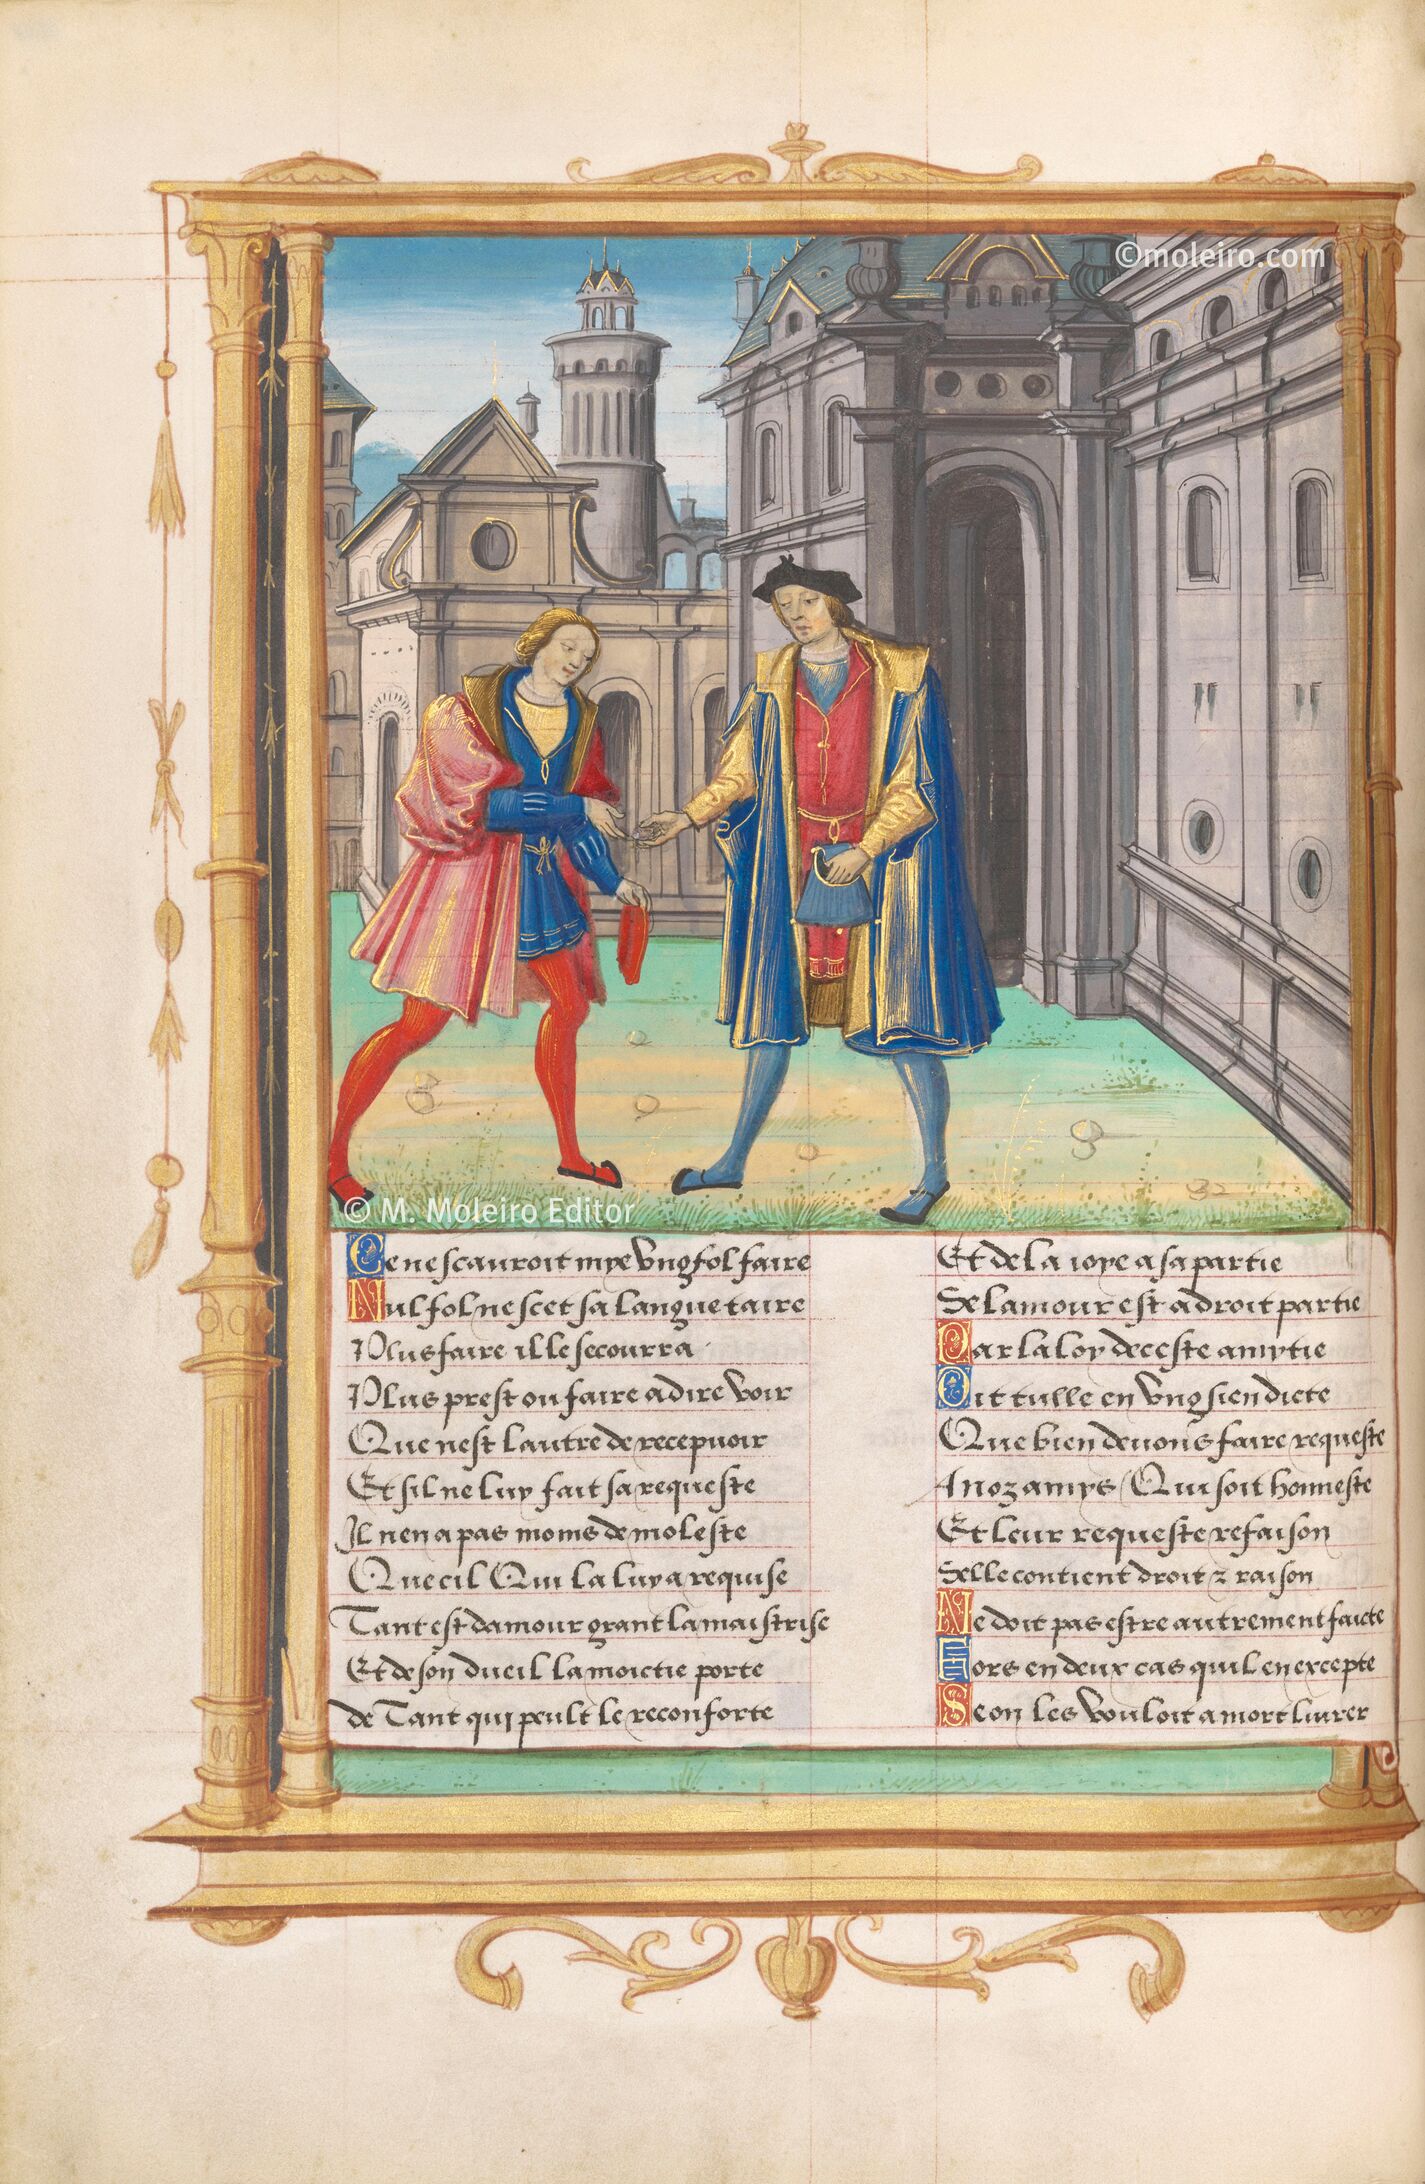 ©moleiro.com
© M. Moleiro Editor
Ce ne scauroit mye ung fol faire
Nul fol ne scet sa langue taire
Plus faire il le secourra
Plus prest ou faire a dire voir
Que nest lautre de recepuoir
Et sil ne luy fait sa requeste
Il nen a pas moins de moleste
Que cil Qui la luy a requise
Tant est damour grant la maistrise
Et de son dueil la moictie porte
de Tant qui peult le reconforte
Et de la ioye a sa partie
Se lamour est a droit partie
Par la loy de ceste amytie
Dit tulle en ung sien diete
Que bien deuons faire requeste
A noz amys Qui soit honneste
Et leur requeste refaison
Selle contient droit z raison
Ne doit pas estre autrement faicte
Fors en deux cas quil en excepte
Se on les vouloit a mort liurer